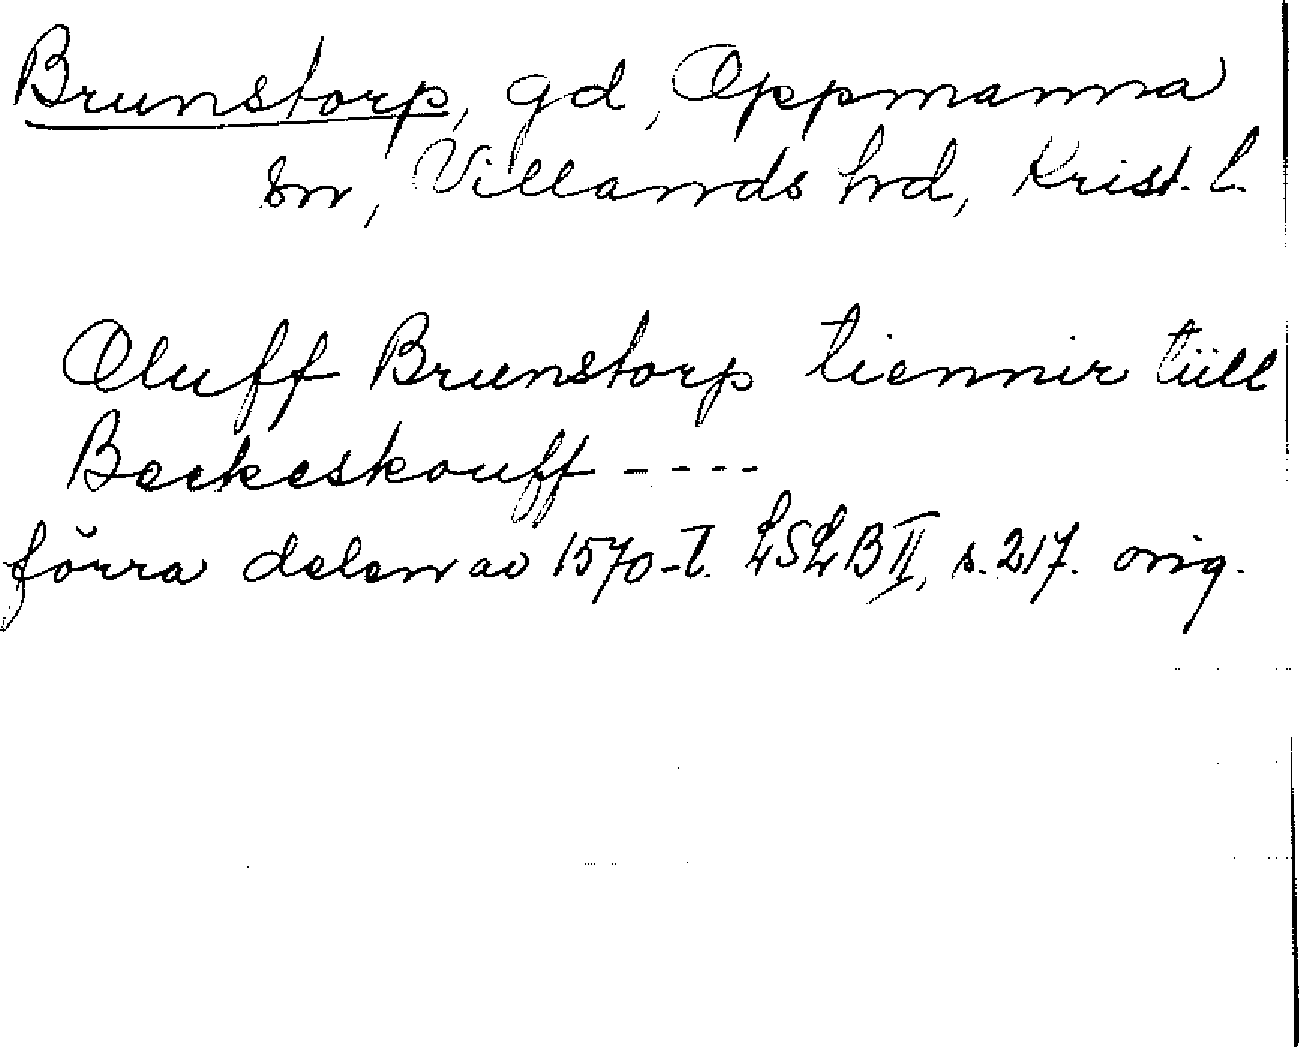 Brunstorp, gd, Oppmanna
sn, Villands hrd, Krist. l.
Oluff Brunstorp tiennir tiill
Beckeskouff ----
förra delen av 1570-t. LSLB II, s. 217. orig.